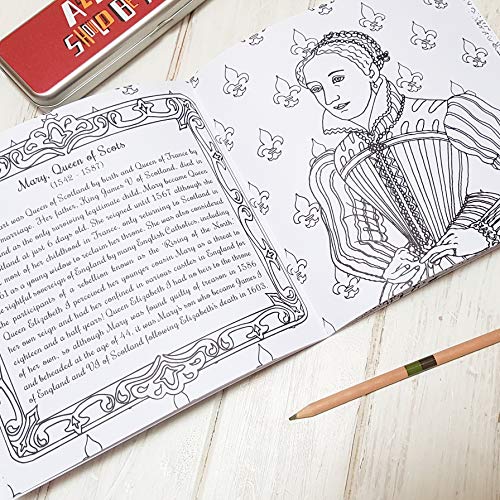 Mary, Queen of Scots
(1542 - 1587)
was Queen of Scotland by birth and Queen of France by
marriage. His father, King James V of Scotland, died in
as the only surviving legitimate child, Mary became Queen
at just 6 days old. She reigned until 1567 although she
most of her childhood in France, only returning to Scotland in
61 as a young widow to reclaim her throne. She was also considered
the rightful sovereign of England by many English Catholics, including
the participants of a rebellion known as the 'Rising of the North'
Queen Elizabeth I perceived her younger cousin Mary as a threat to
her own reign and had her confined in various castles in England for
eighteen and a half years! Queen Elizabeth I had no heir to the throne
of her own, so although Mary was found guilty of treason in 1586
and beheaded at the age of 44, it was Mary's son who became James I
of England and VI of Scotland following Elizabeth's death in 1603.